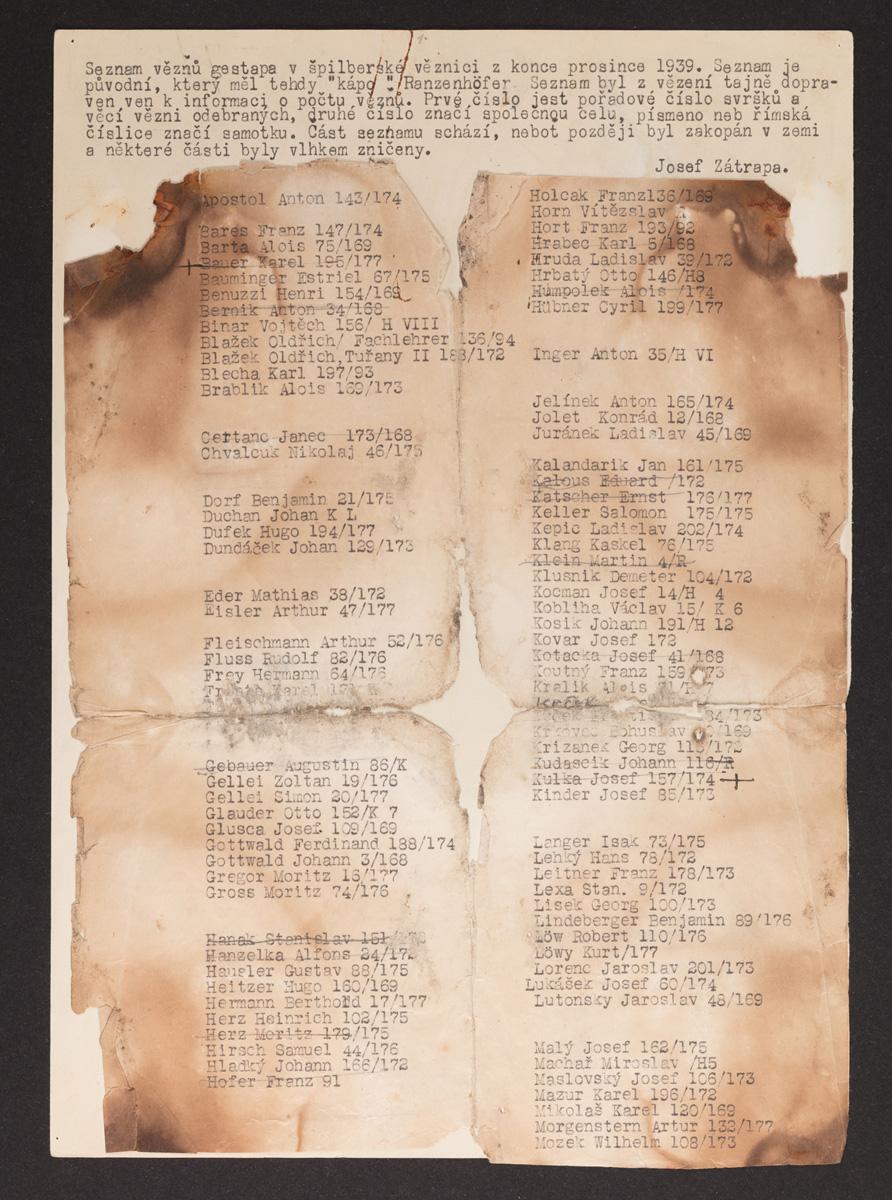 Seznam vězňů gestapa v špilberské věznici z konce prosince 1939. Seznam je
původní, který měl tehdy "kápo" Ranzenhöfer. Seznam byl z vězení tajně dopra-
ven ven k informaci o počtu vězňů. Prvé číslo jest pořadové číslo svršků a
věcí vězni odebraných, druhé číslo značí společnou celu, písmeno neb římská
číslice značí samotku. Část seznamu schází, neboť později byl zakopán v zemi
a některé části byly vlhkem zničeny.
Josef Zátrapa.
Apostol Anton 143/174
Bares Franz 147/174
Barta Alois 75/169
Bauer Karel 195/177
Bauminger Estriel 67/175
Benuzzi Henri 154/169
Bernik Anton 34/168
Binar Vojtěch 156/ H VIII
Blažek Oldřich/ Fachlehrer 136/94
Blažek Oldřich,Tuřany II 188/172
Blecha Karl 197/93
Brablik Alois 169/173
Certanc Janec 173/168
Chvalcuk Nikolaj 46/175
Dorf Benjamin 21/175
Duchan Johan K L
Dufek Hugo 194/177
Dundáček Johan 129/173
Eder Mathias 38/172
Eisler Arthur 47/177
Fleischmann Arthur 52/176
Fluss Rudolf 82/176
Frey Hermann 64/176
Karel
Gebauer Augustin 86/K
Gellei Zoltan 19/176
Gellei Simon 20/177
Glauder Otto 152/K 7
Glusca Josef 109/169
Gottwald Ferdinand 188/174
Gottwald Johann 3/168
Gregor Moritz 16/177
Gross Moritz 74/176
Hanak Stanislav 151/
Hanzelka Alfons 24/172
Haugler Gustav 88/175
Heitzer Hugo 160/169
Hermann Berthold 17/177
Herz Heinrich 102/175
Herz Moritz 179/175
Hirsch Samuel 44/176
Hladký Johann 166/172
Hofer Franz 91
Holcak Franz136/169
Horn Vítězslav
Hort Franz 193/92
Hrabec Karl 5/168
Hruda Ladislav 39/172
Hrbatý Otto 146/H8
Humpolek Alois /174
Hübner Cyril 199/177
Inger Anton 35/H VI
Jelínek Anton 165/174
Jolet Konrád 12/168
Juránek Ladislav 45/169
Kalandarik Jan 161/175
Kalous Eduard /172
Katscher Ernst 176/177
Keller Salomon 175/175
Kepic Ladislav 202/174
Klang Kaskel 76/175
Klein Martin 4/R
Klusnik Demeter 104/172
Kocman Josef 14/H 4
Kobliha Václav 15/ K 6
Kosik Johann 191/H 12
Kovar Josef 172
Kotacka Josef 41/168
Koutný Franz 159
Kralik Alois
84/173
Bohuslav /169
Krizanek Georg 115/172
Kudascik Johann 118/R
Kulka Josef 157/174
Kinder Josef 85/173
Langer Isak 73/175
Lehký Hans 78/172
Leitner Franz 178/173
Lexa Stan. 9/172
Lisek Georg 100/173
Lindeberger Benjamin 89/176
Löw Robert 110/176
Löwy Kurt/177
Lorenc Jaroslav 201/173
Lukášek Josef 60/174
Lutonsky Jaroslav 48/169
Malý Josef 162/175
Machař Miroslav /H5
Maslovský Josef 106/173
Mazur Karel 196/172
Mikolaš Karel 120/169
Morgenstern Artur 132/177
Mozek Wilhelm 108/173